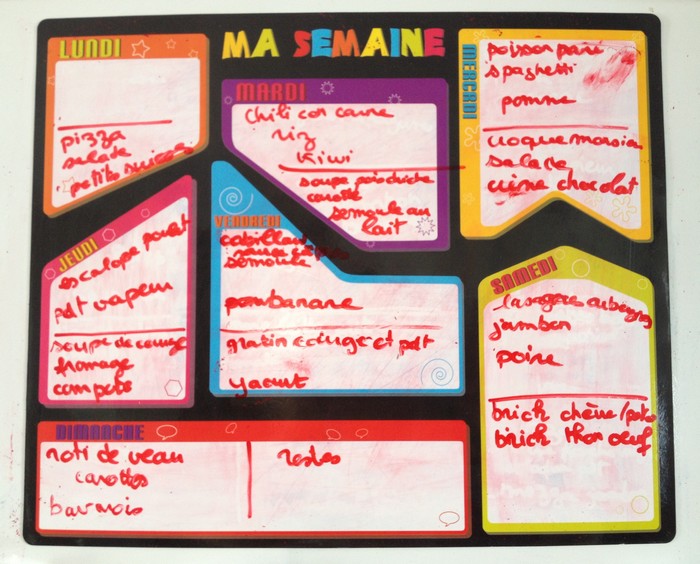 MA SEMAINE
LUNDI
pizza
salade
petits suisses
MARDI
chili con carne
riz
kiwi
soupe pois chiche
carotte
semoule au
lait
MERCREDI
poisson pané
spaghetti
pomme
croque monsieur
salade
crème chocolat
JEUDI
escalope poulet
pdt vapeur
soupe de courge
fromage
compote
VENDREDI
cabillaud
semoule
pom banane
gratin courge et pdt
yaourt
SAMEDI
lasagnes aubergines
jambon
poire
brick chèvre/
brick thon oeuf
DIMANCHE
roti de veau
carottes
bavarois
restes